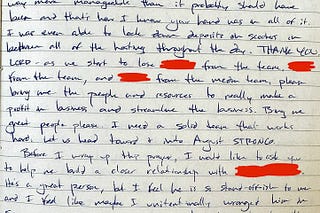 way more manageable than it probably should have
been and that's how I know your hand was in all of it.
I was even able to lock down deposits on scooters in
between all of the hosting throughout the day. THANK YOU
LORD as we start to lose from the team,
from the team, and from the media team, please
bring me the people and resources to really make a
profit in business and streamline the business. Bring me
great people please. I need a solid team that works
hard. Let us head toward + into August STRONG.
Before I wrap up this prayer, I would like to ask you
to help me build a closer relationship with
He's a great person, but I feel he is so stand-offish to me
and I feel like maybe I unintentionally wronged him in